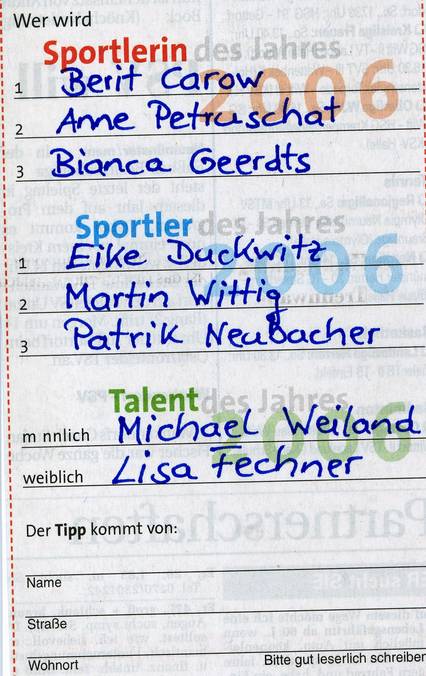 Wer wird
Sportlerin des Jahres
2006
1 Berit Carow
2 Anne Petruschat
3 Bianca Geerdts
Sportler des Jahres
2006
1 Eike Duckwitz
2 Martin Wittig
3 Patrik Neubacher
Talent des Jahres
2006
m nnlich Michael Weiland
weiblich Lisa Fechner
Der Tipp kommt von:
Name
Straße
Wohnort Bitte gut leserlich schreiben